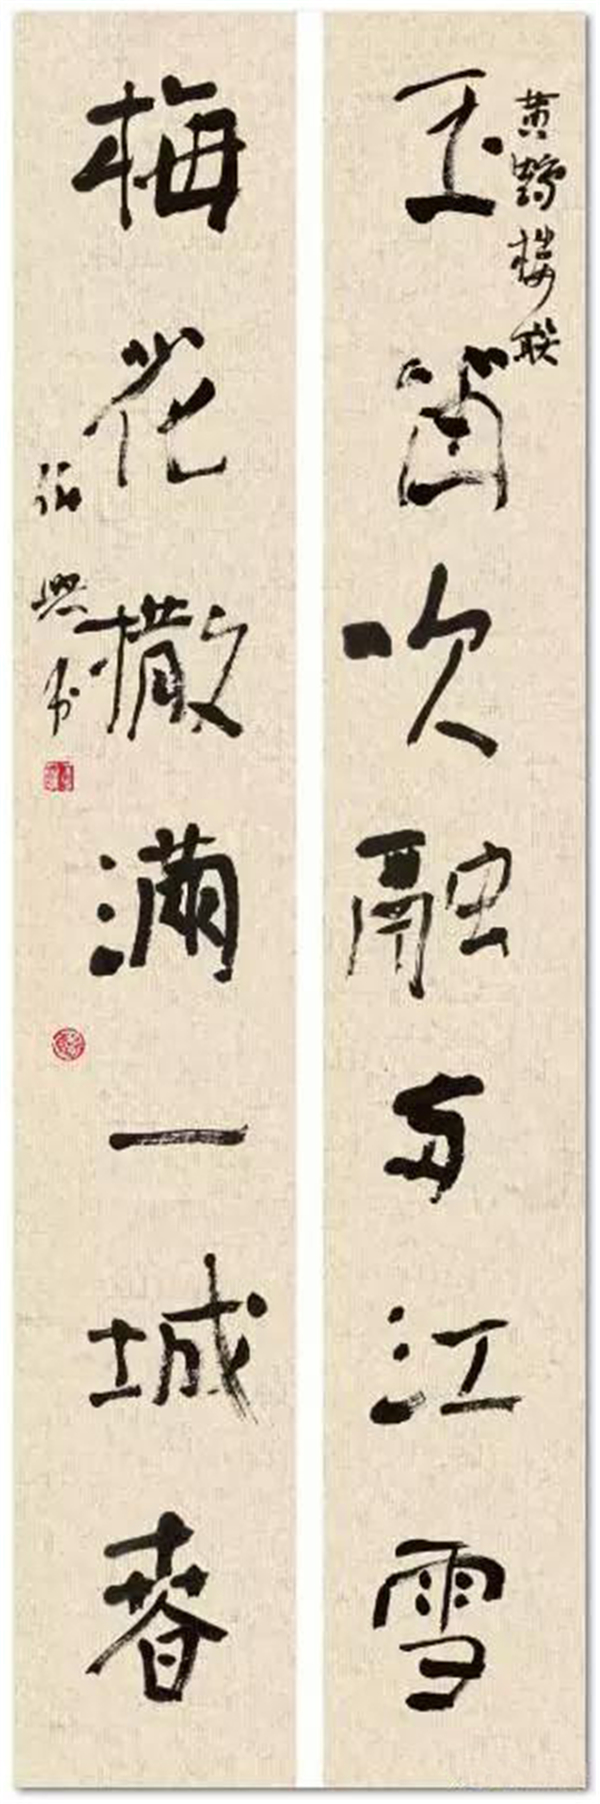 黄鶴楼联
玉笛吹融两江雪
梅花撒满一城春
興书